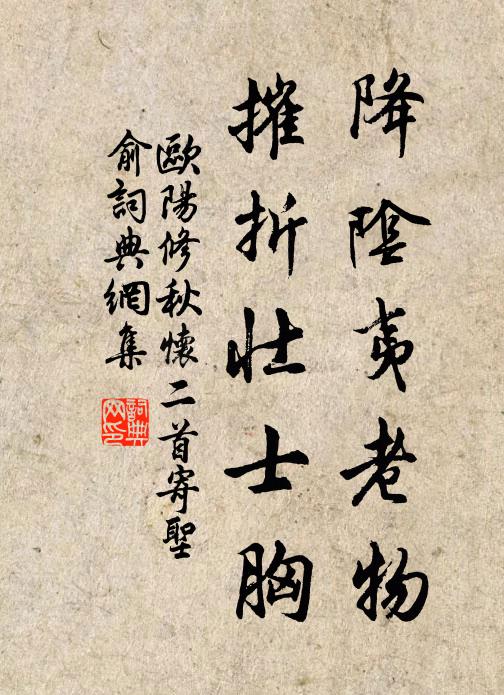 降陰夷老物
摧折壯士胸
歐陽修秋懷二首寄聖
俞詞典網集
詞典网印